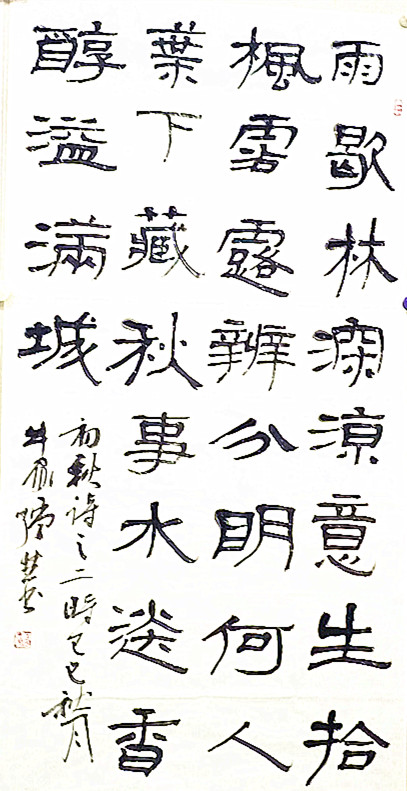 雨歇林深涼意生拾
楓霑露辨分明何人
葉下藏秋事水送香
醇溢滿城
初秋詩之二時乙巳秋月